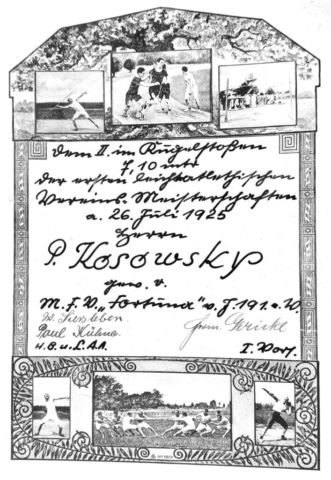 Dem II. im Kugelstoßen
7,10 mtr
der ersten leichtathletischen
Vereins-Meisterschaften
a. 26. Juli 1925
Herrn
P. Kosowsky
gew. v.
M.F.V. „Fortuna“ v. J. 191.
W. Siersleben. Herm. Gericke
Paul Kühne
L.A.A. I. Vors.